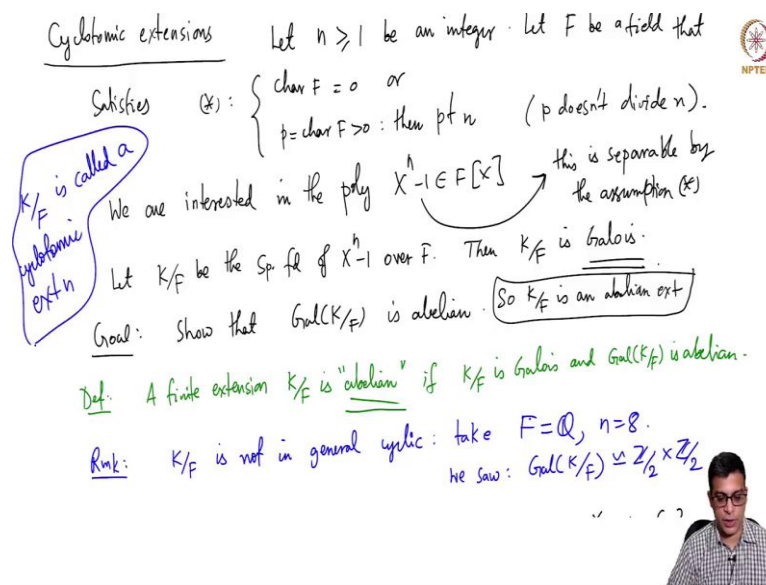 Cyclotomic extensions Let n ≥ 1 be an integer. Let F be a field that
NPTEL
Satisfies (*): { char F = 0 or
p = char F > 0 : then p ∤ n (p doesn't divide n).
K/F is called a cyclotomic extn
We are interested in the poly Xⁿ-1 ∈ F[X] → this is separable by
the assumption (*)
Let K/F be the sp. fd of Xⁿ-1 over F. Then K/F is Galois.
Goal: Show that Gal(K/F) is abelian. So K/F is an abelian ext
Def: A finite extension K/F is "abelian" if K/F is Galois and Gal(K/F) is abelian.
Rmk: K/F is not in general cyclic: take F = ℚ, n=8.
we saw: Gal(K/F) ≃ ℤ/2 × ℤ/2